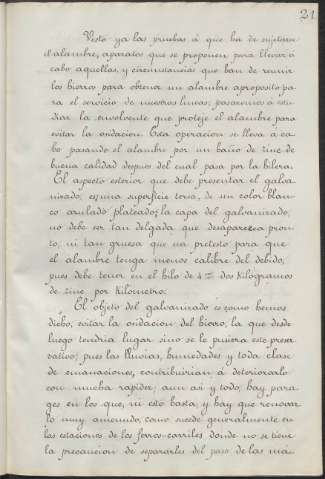 21
Visto ya las pruebas á que ha de sujetarse
el alambre, aparatos que se proponen para llevar á
cabo aquellas, y circunstancias que han de reunir
los hierros para obtener un alambre aproposito pa-
ra el servicio de nuestras lineas; pasaremos á estu-
diar la envolvente que proteje el alambre para
evitar la oxidacion. Esta operacion se lleva á ca-
bo pasando el alambre por un baño de zinc de
buena calidad despues del cual pasa por la hilera.
El aspecto exterior que debe presentar el galva-
nizado, es; una superficie tersa, de un color blan-
co azulado plateado; la capa del galvanizado,
no debe ser tan delgada que desaparezca pron-
to, ni tan gruesa que sea pretesto para que
el alambre tenga menos calibre del debido,
pues debe tener en el hilo de 4 mm dos Kilogramos
de zinc por Kilometro.
El objeto del galvanizado es como hemos
dicho, evitar la oxidacion del hierro, la que desde
luego tendria lugar sino se le pusiera este preser-
vativo; pues las lluvias, humedades y toda clase
de emanaciones, contribuirian á deteriorarlo
con mucha rapidez; aun asi y todo, hay para-
ges en los que, ni esto basta, y hay que renovar
lo muy amenudo, como sucede generalmente en
las estaciones de los ferro-carriles donde no se tiene
la precaucion de separarlos del paso de las ma-